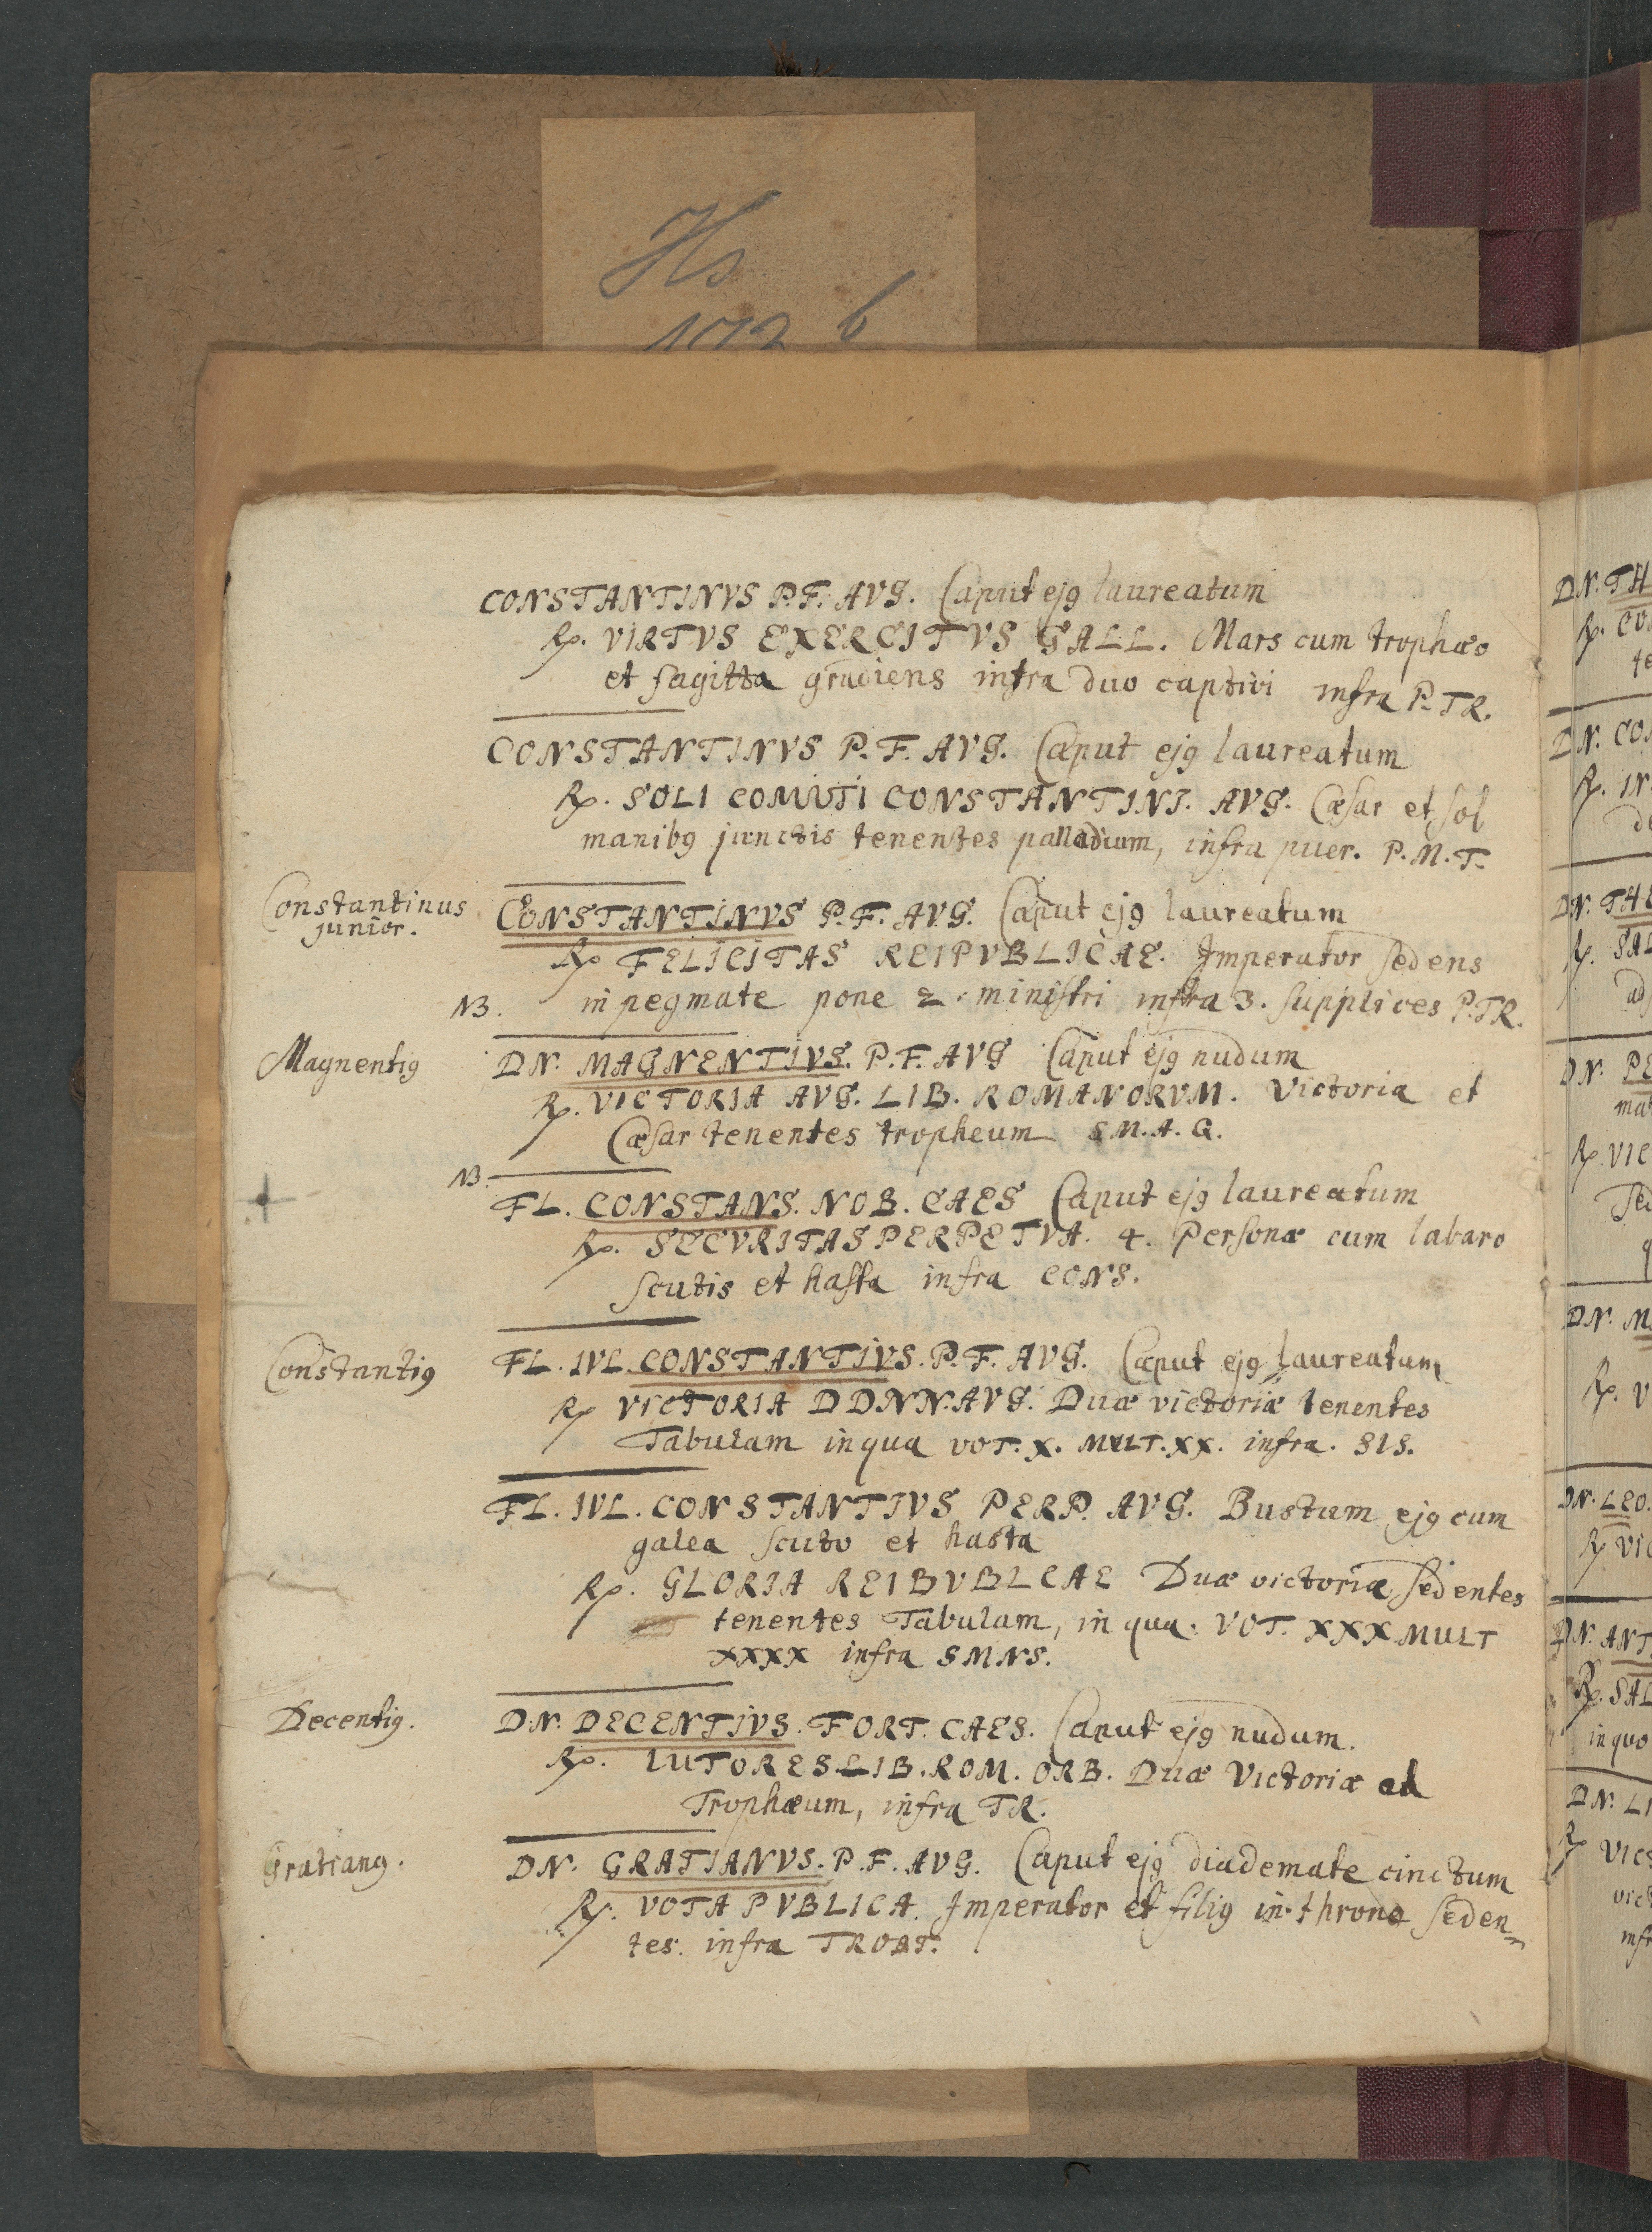 Hs
172 b
CONSTANTINVS P.F. AVG. Caput ej9 laureatum
Rp. VIRTVS EXERCITVS GALL. Mars cum trophæo
et sagitta gradiens infra duo captivi infra P.TR.
CONSTANTINVS P.F. AVG. Caput ej9 laureatum
Rp. SOLI COMVTI CONSTANTINI. AVG. Cæsar et sol
manib9 junctis tenentes palladium, infra puer. P.M.T.
Constantinus
junior.
CONSTANTINVS P.F. AVG. Caput ej9 laureatum
Rp FELICITAS REIPVBLICAE. Imperator sedens
NB. in pegmate pone 2. ministri infra 3. supplices P.TR.
Magnenti9
DN. MAGNENTIVS. P.F. AVG Caput ej9 nudum
Rp. VICTORIA AVG. LIB. ROMANORVM. Victoria et
Cæsar tenentes tropheum S.M.A.Q.
NB.
FL. CONSTANS. NOB. CAES Caput ej9 laureatum
Rp. SECVRITAS PERPETVA. 4. Personæ cum labaro
scutis et hasta infra CONS.
Constanti9
FL. IVL. CONSTANTIVS. P.F. AVG. Caput ej9 laureatum
Rp VICTORIA DDNN.AVG. Duæ victoriæ tenentes
Tabulam in qua VOT. X. MVLT. XX. infra. SIS.
FL. IVL. CONSTANTIVS PERP. AVG. Bustum ej9 cum
galea scuto et hasta
Rp. GLORIA REIBVBLCAE Duæ victoriæ sedentes
tenentes Tabulam, in qua. VOT. XXX MULT
XXXX infra SMNS.
Decenti9.
DN. DECENTIVS. FORT. CAES. Caput ej9 nudum.
Rp. IUTORES LIB. ROM. ORB. Duæ Victoriæ ad
Trophæum, infra TR.
Gratian9.
DN. GRATIANVS. P.F. AVG. Caput ej9 diademate cinctum
Rp. VOTA PVBLICA. Imperator et fili9 in throno seden=
tes. infra TROBT.